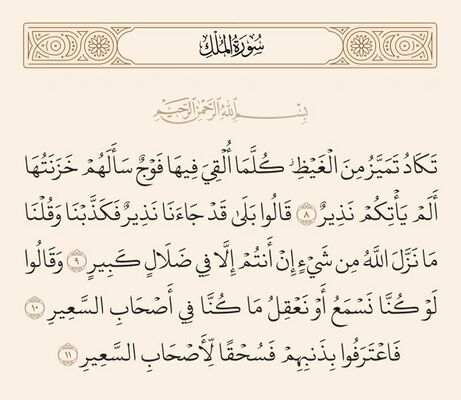 سُورَةُ المُلْكِ
بِسْمِ اللَّهِ الرَّحْمَٰنِ الرَّحِيمِ
تَكَادُ تَمَيَّزُ مِنَ الْغَيْظِ ۖ كُلَّمَا أُلْقِيَ فِيهَا فَوْجٌ سَأَلَهُمْ خَزَنَتُهَا
أَلَمْ يَأْتِكُمْ نَذِيرٌ ٨ قَالُوا بَلَىٰ قَدْ جَاءَنَا نَذِيرٌ فَكَذَّبْنَا وَقُلْنَا
مَا نَزَّلَ اللَّهُ مِن شَيْءٍ إِنْ أَنتُمْ إِلَّا فِي ضَلَالٍ كَبِيرٍ ٩ وَقَالُوا
لَوْ كُنَّا نَسْمَعُ أَوْ نَعْقِلُ مَا كُنَّا فِي أَصْحَابِ السَّعِيرِ ١٠
فَاعْتَرَفُوا بِذَنبِهِمْ فَسُحْقًا لِّأَصْحَابِ السَّعِيرِ ١١